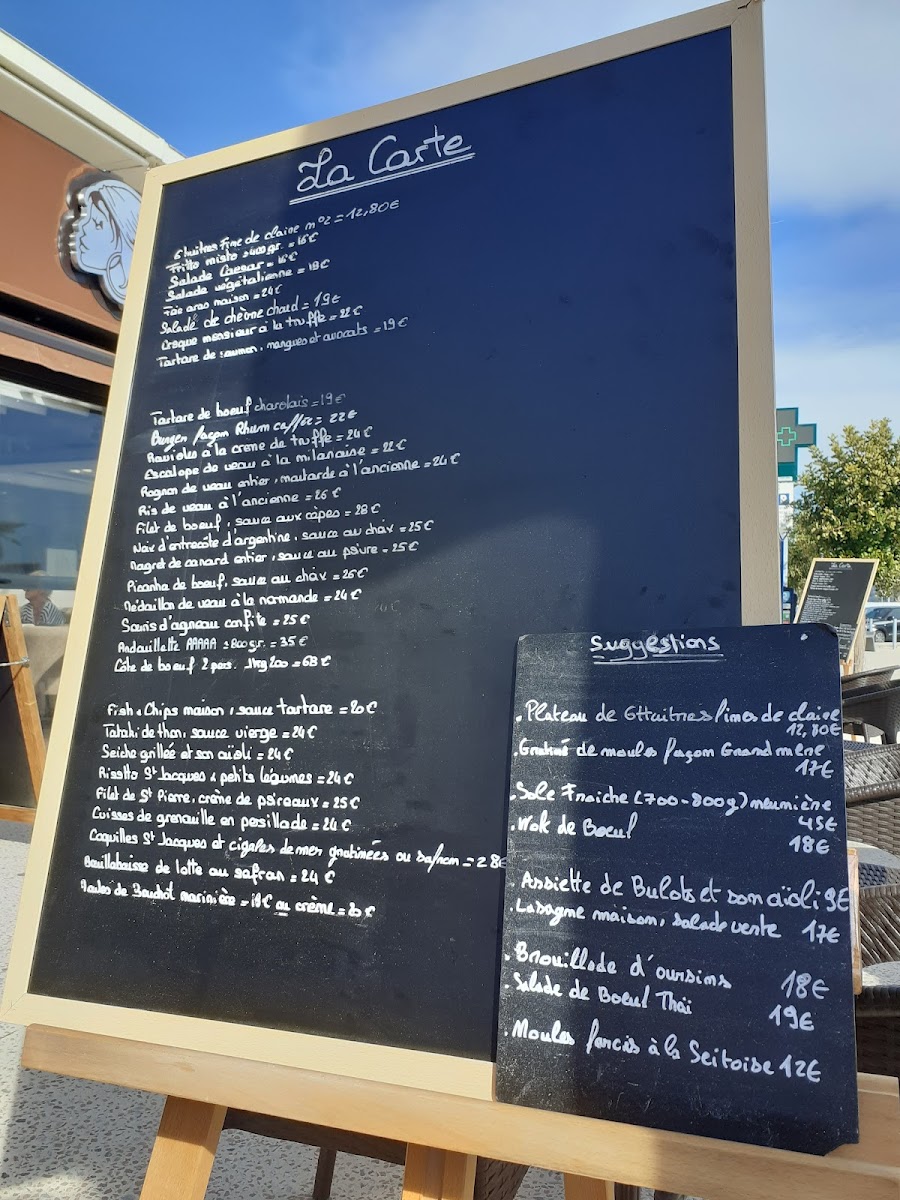 La Carte
6 huitres Fine de claire n°2 = 12,80€
Fritto misto 400gr. = 16€
Salade Caesar = 16€
Salade végétalienne = 18€
Foie gras maison = 24€
Salade de chèvre chaud = 19€
Croque monsieur à la truffe = 22€
Tartare de saumon, mangues et avocats = 19€
Tartare de boeuf charolais = 19€
Burger façon Rhum caffée = 22€
Ravioles à la crème de truffe = 24€
Escalope de veau à la milanaise = 22€
Rognon de veau entier, moutarde à l'ancienne = 24€
Ris de veau à l'ancienne = 26€
Filet de boeuf, sauce aux cèpes = 28€
Noix d'entrecôte d'argentine, sauce au choix = 25€
Magret de canard entier, sauce au poivre = 25€
Picanha de boeuf, sauce au choix = 26€
Médaillon de veau à la normande = 24€
Souris d'agneau confite = 25€
Andouillette AAAAA ±800gr. = 35€
Côte de boeuf 2 pers. 1kg200 = 68€
Fish & Chips maison, sauce tartare = 20€
Tataki de thon, sauce vierge = 24€
Seiche grillée et son aïoli = 24€
Rissotto St Jacques & petits légumes = 24€
Filet de St Pierre, crème de poireaux = 25€
Cuisses de grenouille en persillade = 24€
Coquilles St Jacques et cigales de mer gratinées au safran = 28€
Bouillabaisse de lotte au safran = 24€
Moules de Bouchot marinière = 18€ ou crème = 20€
Suggestions
. Plateau de 6 Huitres fines de claire
12,80€
. Gratiné de moules façon Grand mère
17€
. Sole Fraiche (700-800g) meunière
45€
. Wok de Boeuf
18€
. Assiette de Bulots et son aïoli 9€
. Lasagne maison, salade verte 17€
. Brouillade d'oursins 18€
. Salade de Boeuf Thaï 19€
. Moules farcis à la Seitoise 12€
La Carte